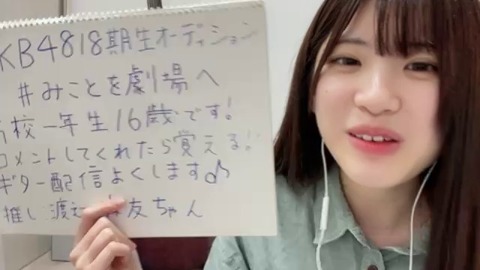 KB4818期生オーディション
#みことを劇場へ
高校一年生16歳です!
コメントしてくれたら覚える!!
ギター配信よくします♪
推し 渡辺 友ちゃん